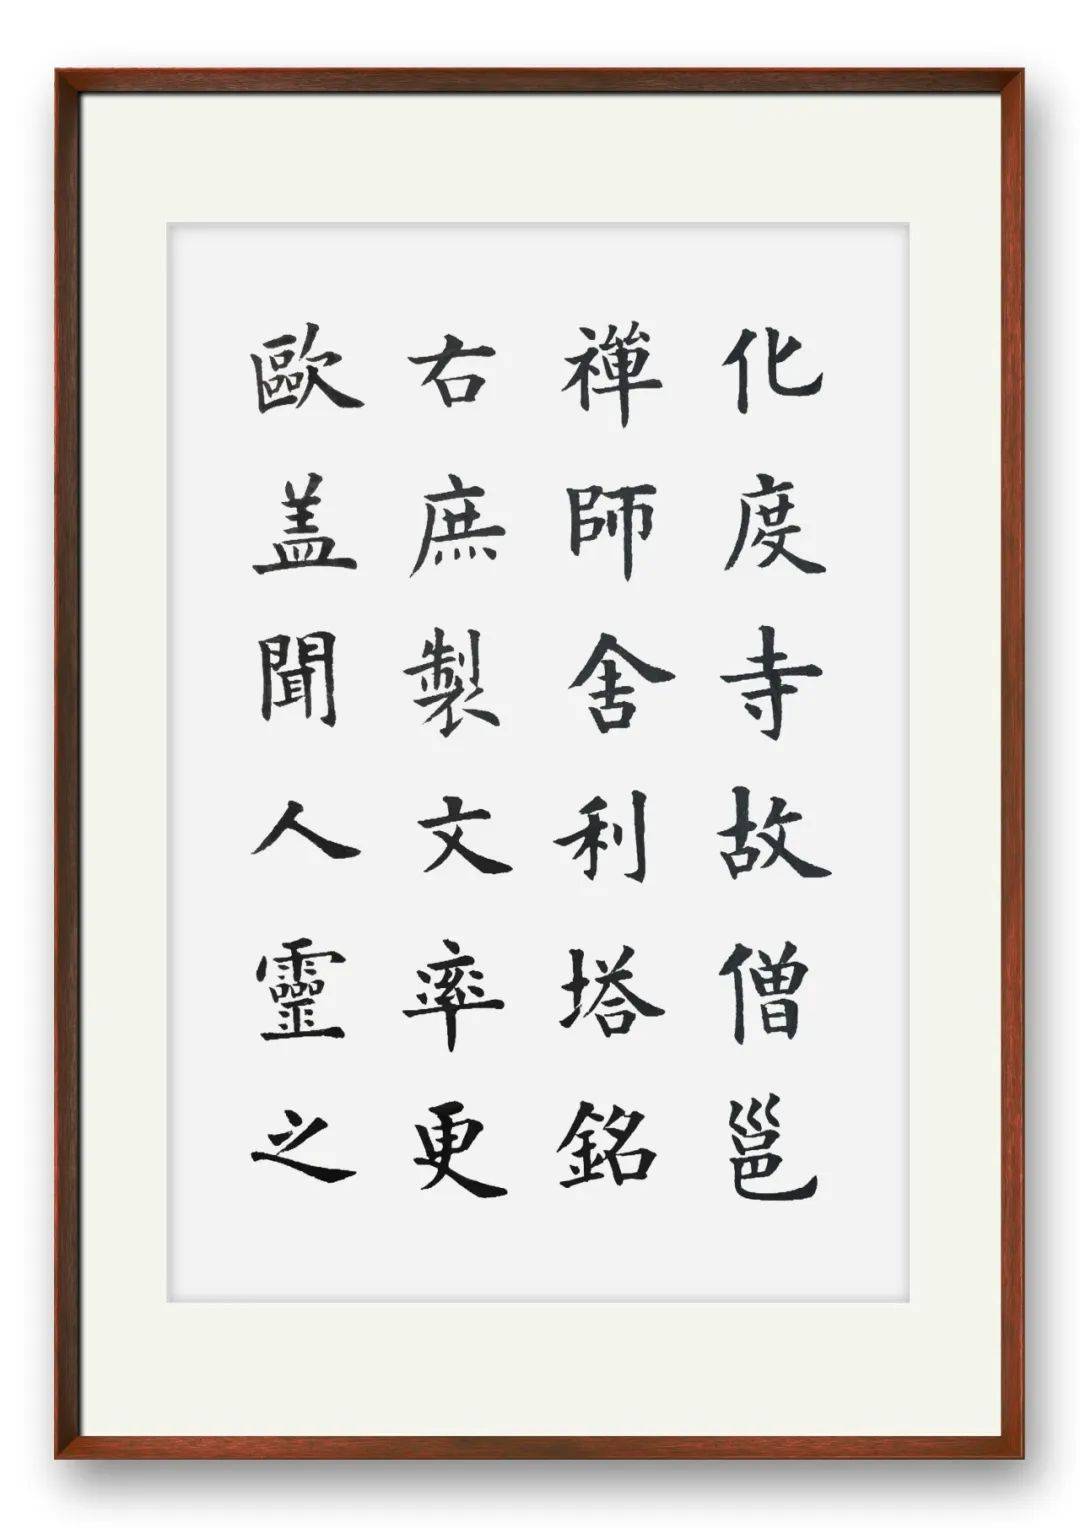 化度寺故僧邕
禪師舍利塔銘
右庶製文率更
歐盖聞人靈之